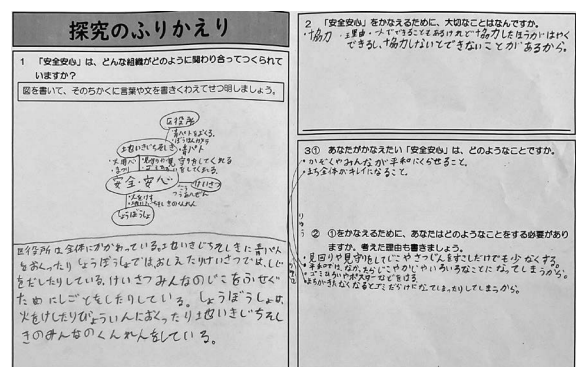 探究のふりかえり
1 「安全安心」は、どんな組織がどのように関わり合ってつくられて
いますか？
図を書いて、そのちかくに言葉や文を書きくわえてせつ明しましょう。
区役所
・青パトをおくる。
・ぼうはんカメラ
・青パト
ちいきじちそしき
見守りをしてくれる
をしてくれる。
安全・安心
けいさつ
・火をけす
しょうぼうしょ
区役所は全体にかかわっている。ちいきじちそしきに青パト
をおくったりしょうぼうしょでは、おしえたりけいさつでは、しじ
をだしたりしている。けいさつみんなのじこをふせぐ
ためにしごとをしたりしている。しょうぼうしょは、
火をけしたりびょういんにおくったりちいきじちそし
きのみんなのくんれんをしている。
2 「安全安心」をかなえるために、大切なことはなんですか。
・協力 理由・人でできることもあるけれど協力したほうがはやく
できるし、協力しないとできないことがあるから。
3① あなたがかなえたい「安全安心」は、どのようなことですか。
・かぞくやみんなが平和にくらせること。
・まち全体がキレイになること。
② ①をかなえるために、あなたはどのようなことをする必要があり
ますか。考えた理由も書きましょう。
・見回りや見守りをしてじこやさつじんをすこしだけでも少なくする。
・平和では、なかったらじこやかじやいろいろなことになってしまうから。
・ゴミひろいやポスターなどをはる
まちがきたなくなるとゴミだらけになってしまったりしてしまうから。